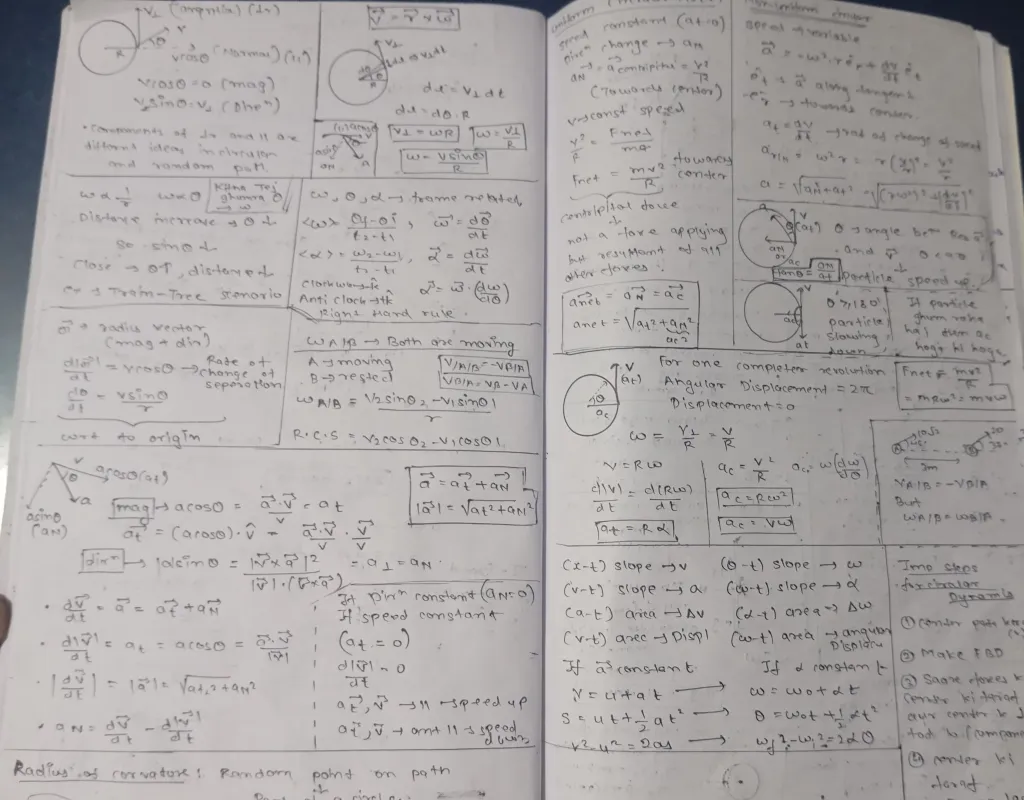 V⊥ (amplitude) (dr)
V
θ
R
vcosθ (Normal) (11)
vcosθ = 0 (mag)
v sinθ = v⊥ (Dirⁿ)
• components of dr and 11 are
different ideas in circular
and random path.
V⃗ = r⃗ x ω⃗
V⊥
dl = V⊥ dt
dl = dθ.R
V⊥ = ωR
ω = V⊥/R
ω = Vsinθ/R
ω ∝ 1/r ω ∝ θ
Kitna Tej
ghumra θ
→ ω
Distance increase → θ ↓
so sinθ ↓
close → θ↑, distance ↓
ex → Train-Tree scenario
ω, θ, α → frame related
<ω> = θf-θi/t2-t1, ω⃗ = dθ⃗/dt
<α> = ω2-ω1/t2-t1, α⃗ = dω⃗/dt
clockwise → -ve
Anti clock → +ve
α⃗ = ω⃗.(dω/dθ)
Right Hand rule.
r⃗ → radius vector
(mag + dirⁿ)
d|r⃗|/dt = vcosθ → Rate of
change of
seperation
dθ/dt = vsinθ/r
wrt to origin
ωA/B → Both are moving
A → moving
B → rested
VA/B = -VB/A
VB/A = VB - VA
ωA/B = V2sinθ2 - V1sinθ1/r
R.C.S = V2cosθ2 - V1cosθ1
V
acosθ (at)
θ
a
asinθ
(aN)
mag → acosθ = a⃗.v⃗/v = at
at⃗ = (acosθ).v̂ = a⃗.v⃗/v . v⃗/v
dirⁿ → |a|sinθ = |v⃗ x a⃗|²/|v⃗|.(v⃗ x a⃗) = a⊥ = aN
a⃗ = at⃗ + aN⃗
|a⃗| = √at² + aN²
• dv⃗/dt = a⃗ = at⃗ + aN⃗
• d|v⃗|/dt = at = acosθ = a⃗.v⃗/|v⃗|
• |dv⃗/dt| = |a⃗| = √at² + aN²
• aN = dv⃗/dt - d|v⃗|/dt
If dirⁿ constant (aN=0)
If speed constant
(at = 0)
d|v⃗|/dt = 0
at⃗, v⃗ → 11 → speed up
at⃗, v⃗ → anti 11 → speed
down
Radius of curvature: Random point on path
speed constant (at=0)
dirⁿ change → aN
aN⃗ = a⃗centripetal = v²/R
(Towards center)
v → const speed
v²/R = Fnet/m
Fnet = mv²/R towards
center
centripetal force
↓
not a force applying
but resultant of all
other forces.
anet⃗ = aN⃗ = ac⃗
anet = √at² + aN²
ac²
speed → variable
a⃗ = -ω².r êr + dv/dt êt
êt → a⃗ along tangent
-êr → towards center.
at = dv/dt → rate of change of speed
ar/N = ω²r = r(v/r)² = v²/r
a = √aN² + at² = √(rω²)² + (dv/dt)²
θ → angle betⁿ a⃗
and v⃗ θ<90
tanθ = aN/at
particle speed up
θ>180
particle
slowing
down
If particle
ghum raha
hai tum ac
hoga hi hoga
For one complete revolution
Angular Displacement = 2π
Displacement = 0
V
(at)
θ
ac
Fnet = mv²/R
= mRω² = mvω
ω = V⊥/R = V/R
V = Rω
d|v|/dt = d(Rω)/dt
at = Rα
ac = V²/R
ac = ω(dω/dθ)
ac = Rω²
ac = Vω
10
20
2m
VA/B = -VB/A
But
ωA/B = ωB/A
(x-t) slope → v
(θ-t) slope → ω
(v-t) slope → a
(ω-t) slope → α
(a-t) area → Δv
(α-t) area → Δω
(v-t) area → Displ
(ω-t) area → angular
Displacn
If a⃗ constant
If α constant
V = u + at → ω = ω0 + αt
S = ut + 1/2 at² → θ = ω0t + 1/2 αt²
v² - u² = 2as → ωf² - ωi² = 2αθ
Imp steps
for circular
Dynamics
① center
② Make FBD
③ Saare forces k
center ki taraf
aur center k
④ center ki
taraf